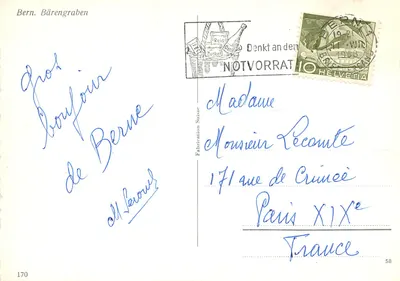 Bern. Bärengraben
Denkt an den
NOTVORRAT
BERN 1
10 HELVETIA
Gros
bonjour
de Berne
Fabrication Suisse
Madame
Monsieur Lecomte
171 rue de Crimée
Paris XIXe
France
170
58